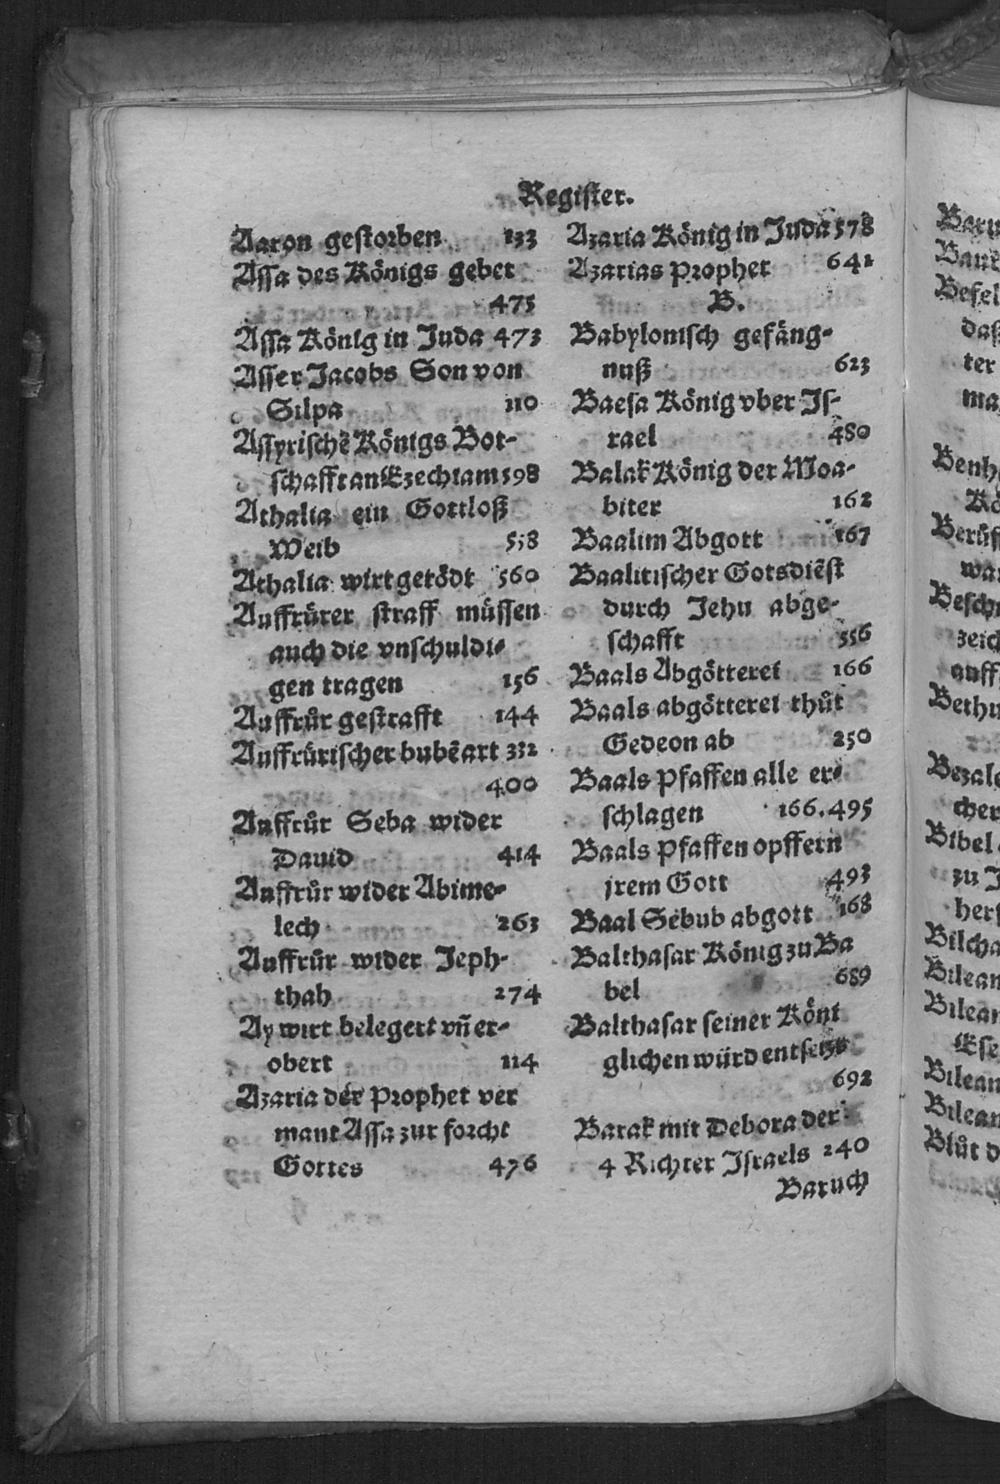 Register.
Aaron gestorben 133
Assa des Königs gebet
475
Assa König in Juda 473
Asser Jacobs Son von
Silpa 110
Assyrischẽ Königs Bot-
schafft an Ezechiam 598
Athalia ein Gottloß
Weib 558
Athalia wirt getödt 560
Auffrürer straff müssen
auch die vnschuldi-
gen tragen 156
Auffrůr gestrafft 144
Auffrürischer bubẽ art 332
400
Auffrůr Seba wider
Dauid 414
Auffrůr wider Abime-
lech 263
Auffrůr wider Jeph-
thah 274
Ay wirt belegert vñ er-
obert 114
Azaria der Prophet ver
mant Assa zur forcht
Gottes 476
Azaria König in Juda 578
Azarias Prophet 641
B.
Babylonisch gefäng-
nuß 623
Baesa König vber Js-
rael 480
Balak König der Moa-
biter 162
Baalim Abgott 167
Baalitischer Gotsdiẽst
durch Jehu abge-
schafft 556
Baals Abgötterei 166
Baals abgötterei thůt
Gedeon ab 250
Baals Pfaffen alle er-
schlagen 166.495
Baals Pfaffen opffern
jrem Gott 493
Baal Sebub abgott 168
Balthasar König zu Ba
bel 689
Balthasar seiner Köni
glichen würd entsetzt
692
Barak mit Debora der
4 Richter Jsraels 240
Baruch
Benh
Beschn
zeich
auff
Bethu
cher
Bibel
zu J
Bilcha
Bilean
Bilean
Ese
Bilean
Bilean
Blůt d